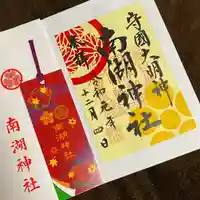 守國大明神
南湖神社
奉拝
令和元年
十二月四日
南湖神社
南湖神社